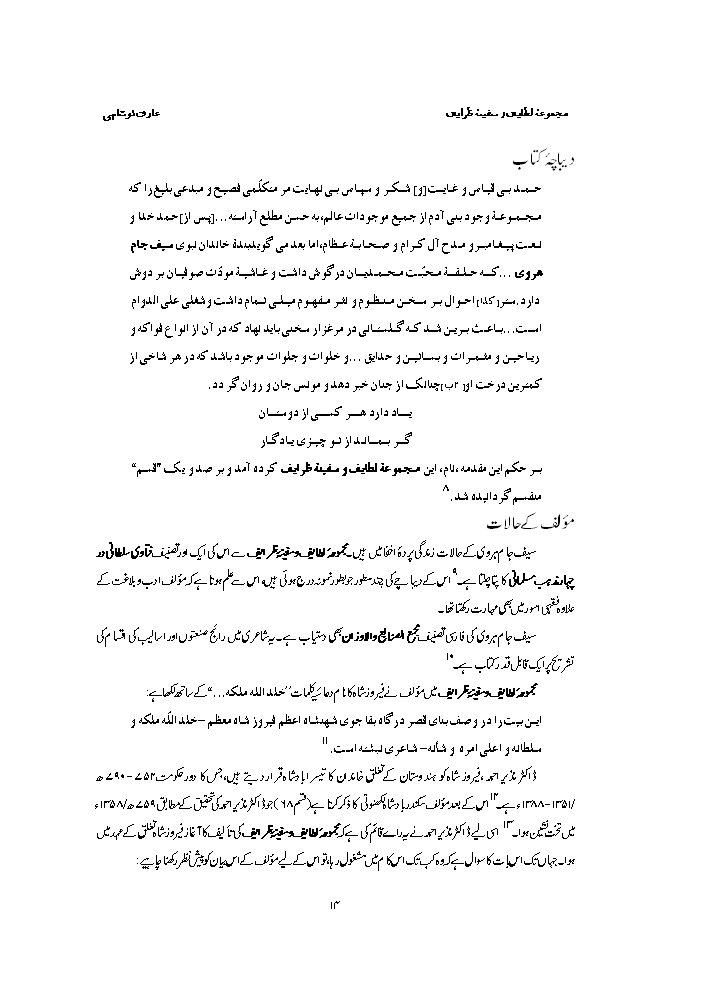 مجموعهٔ لطایف و سفینهٔ ظرایف
عارف نوشاہی
دیباچۂ کتاب
حمد بی قیاس و غایت [و] شکر و سپاس بی نهایت مر متکلّمی فصیح و مبدعی بلیغ را که
مجموعهٔ وجود بنی آدم از جمیع موجودات عالم، به حسن مطلع آراسته ...[پس از] حمد خدا و
نعت پیغامبر و مدح آل کرام و صحابهٔ عظام، اما بعد می گوید بندهٔ خاندان نبوی سیف جام
هروی ... که حلقهٔ محبّت محمدیان در گوش داشت و غاشیهٔ مودّت صوفیان بر دوش
دارد. ستر [کذا] احوال بر سخن منظوم و نثر مفهوم میلی تمام داشت و شغلی علی الدوام
است... باعث برین شد که گلستانی در مرغزار سخنی باید نهاد که در آن از انواع فواکه و
ریاحین و مثمرات و بساتین و حدایق ... و خلوات و جلوات موجود باشد که در هر شاخی از
کمترین درخت او [۲ب] چنانک از جنان خبر دهد و مونس جان و روان گردد.
یاد دارد هر کسی از دوستان
گر بماند از تو چیزی یادگار
بر حکم این مقدمه، نام، این مجموعهٔ لطایف و سفینهٔ ظرایف کرده آمد و بر صد و یک "قسم"
منقسم گردانیده شد.۸
مؤلف کے حالات
سیف جام ہروی کے حالات زندگی پردۂ اخفا میں ہیں۔ مجموعۂ لطایف و سفینۂ ظرایف سے اس کی ایک اور تصنیف فتاوی سلطانی در
چہار مذہب مسلمانی کا پتا چلتا ہے۔۹ اس کے دیباچے کی چند سطور جو بطور نمونہ درج ہوئی ہیں، اس سے علم ہوتا ہے کہ مؤلف ادب و بلاغت کے
علاوہ فقہی امور میں بھی مہارت رکھتا تھا۔
سیف جام ہروی کی فارسی تصنیف مجمع الصنایع والاوزان بھی دستیاب ہے۔ یہ شاعری میں رائج صنعتوں اور اسالیب کی اقسام کی
تشریح پر ایک قابل قدر کتاب ہے۔۱۰
مجموعۂ لطایف و سفینۂ ظرایف میں مؤلف نے فیروز شاہ کا نام دعائیہ کلمات "خلد الله ملکه..." کے ساتھ لکھا ہے:
این بیت را در وصف بنای قصر درگاه بقا جوی شهنشاه اعظم فیروز شاه معظم –خلد اللّه ملکه و
سلطانه و اعلی امره و شأنه– شاعری نبشته است.۱۱
ڈاکٹر نذیر احمد، فیروز شاہ کو ہندوستان کے تغلق خاندان کا تیسرا بادشاہ قرار دیتے ہیں، جس کا دور حکومت ۷۵۲–۷۹۰ھ
/۱۳۵۱–۱۳۸۸ء ہے۔۱۲ اس کے بعد مؤلف سکندر بادشاہ لکھنوتی کا ذکر کرتا ہے (قسم ۶۸) جو ڈاکٹر نذیر احمد کی تحقیق کے مطابق ۷۵۹ھ/۱۳۵۸ء
میں تخت نشین ہوا۔۱۳ اسی لیے ڈاکٹر نذیر احمد نے یہ رائے قائم کی ہے کہ مجموعۂ لطایف و سفینۂ ظرایف کی تألیف کا آغاز فیروز شاہ تغلق کے عہد میں
ہوا۔ جہاں تک اس بات کا سوال ہے کہ وہ کب تک اس کام میں مشغول رہا، تو اس کے لیے مؤلف کے اس بیان کو پیش نظر رکھنا چاہیے:
۱۴